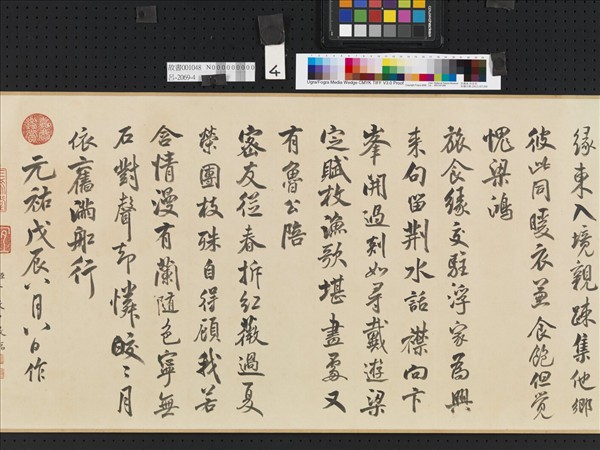 故書001048 N000000000
呂-2069-4
4
緣東入境親疎集他鄉
彼此同暖衣並食飽但覺
愧梁鴻
旅食緣交駐浮家為興
来句留荆水話襟向卞
峯開過剡如尋戴遊梁
定賦枚漁歌堪畫處又
有魯公陪
密友從春拆紅薇過夏
榮團枝殊自得顧我若
含情漫有蘭隨色寧無
石對聲却憐皎〻月
依舊滿船行
元祐戊辰八月八日作